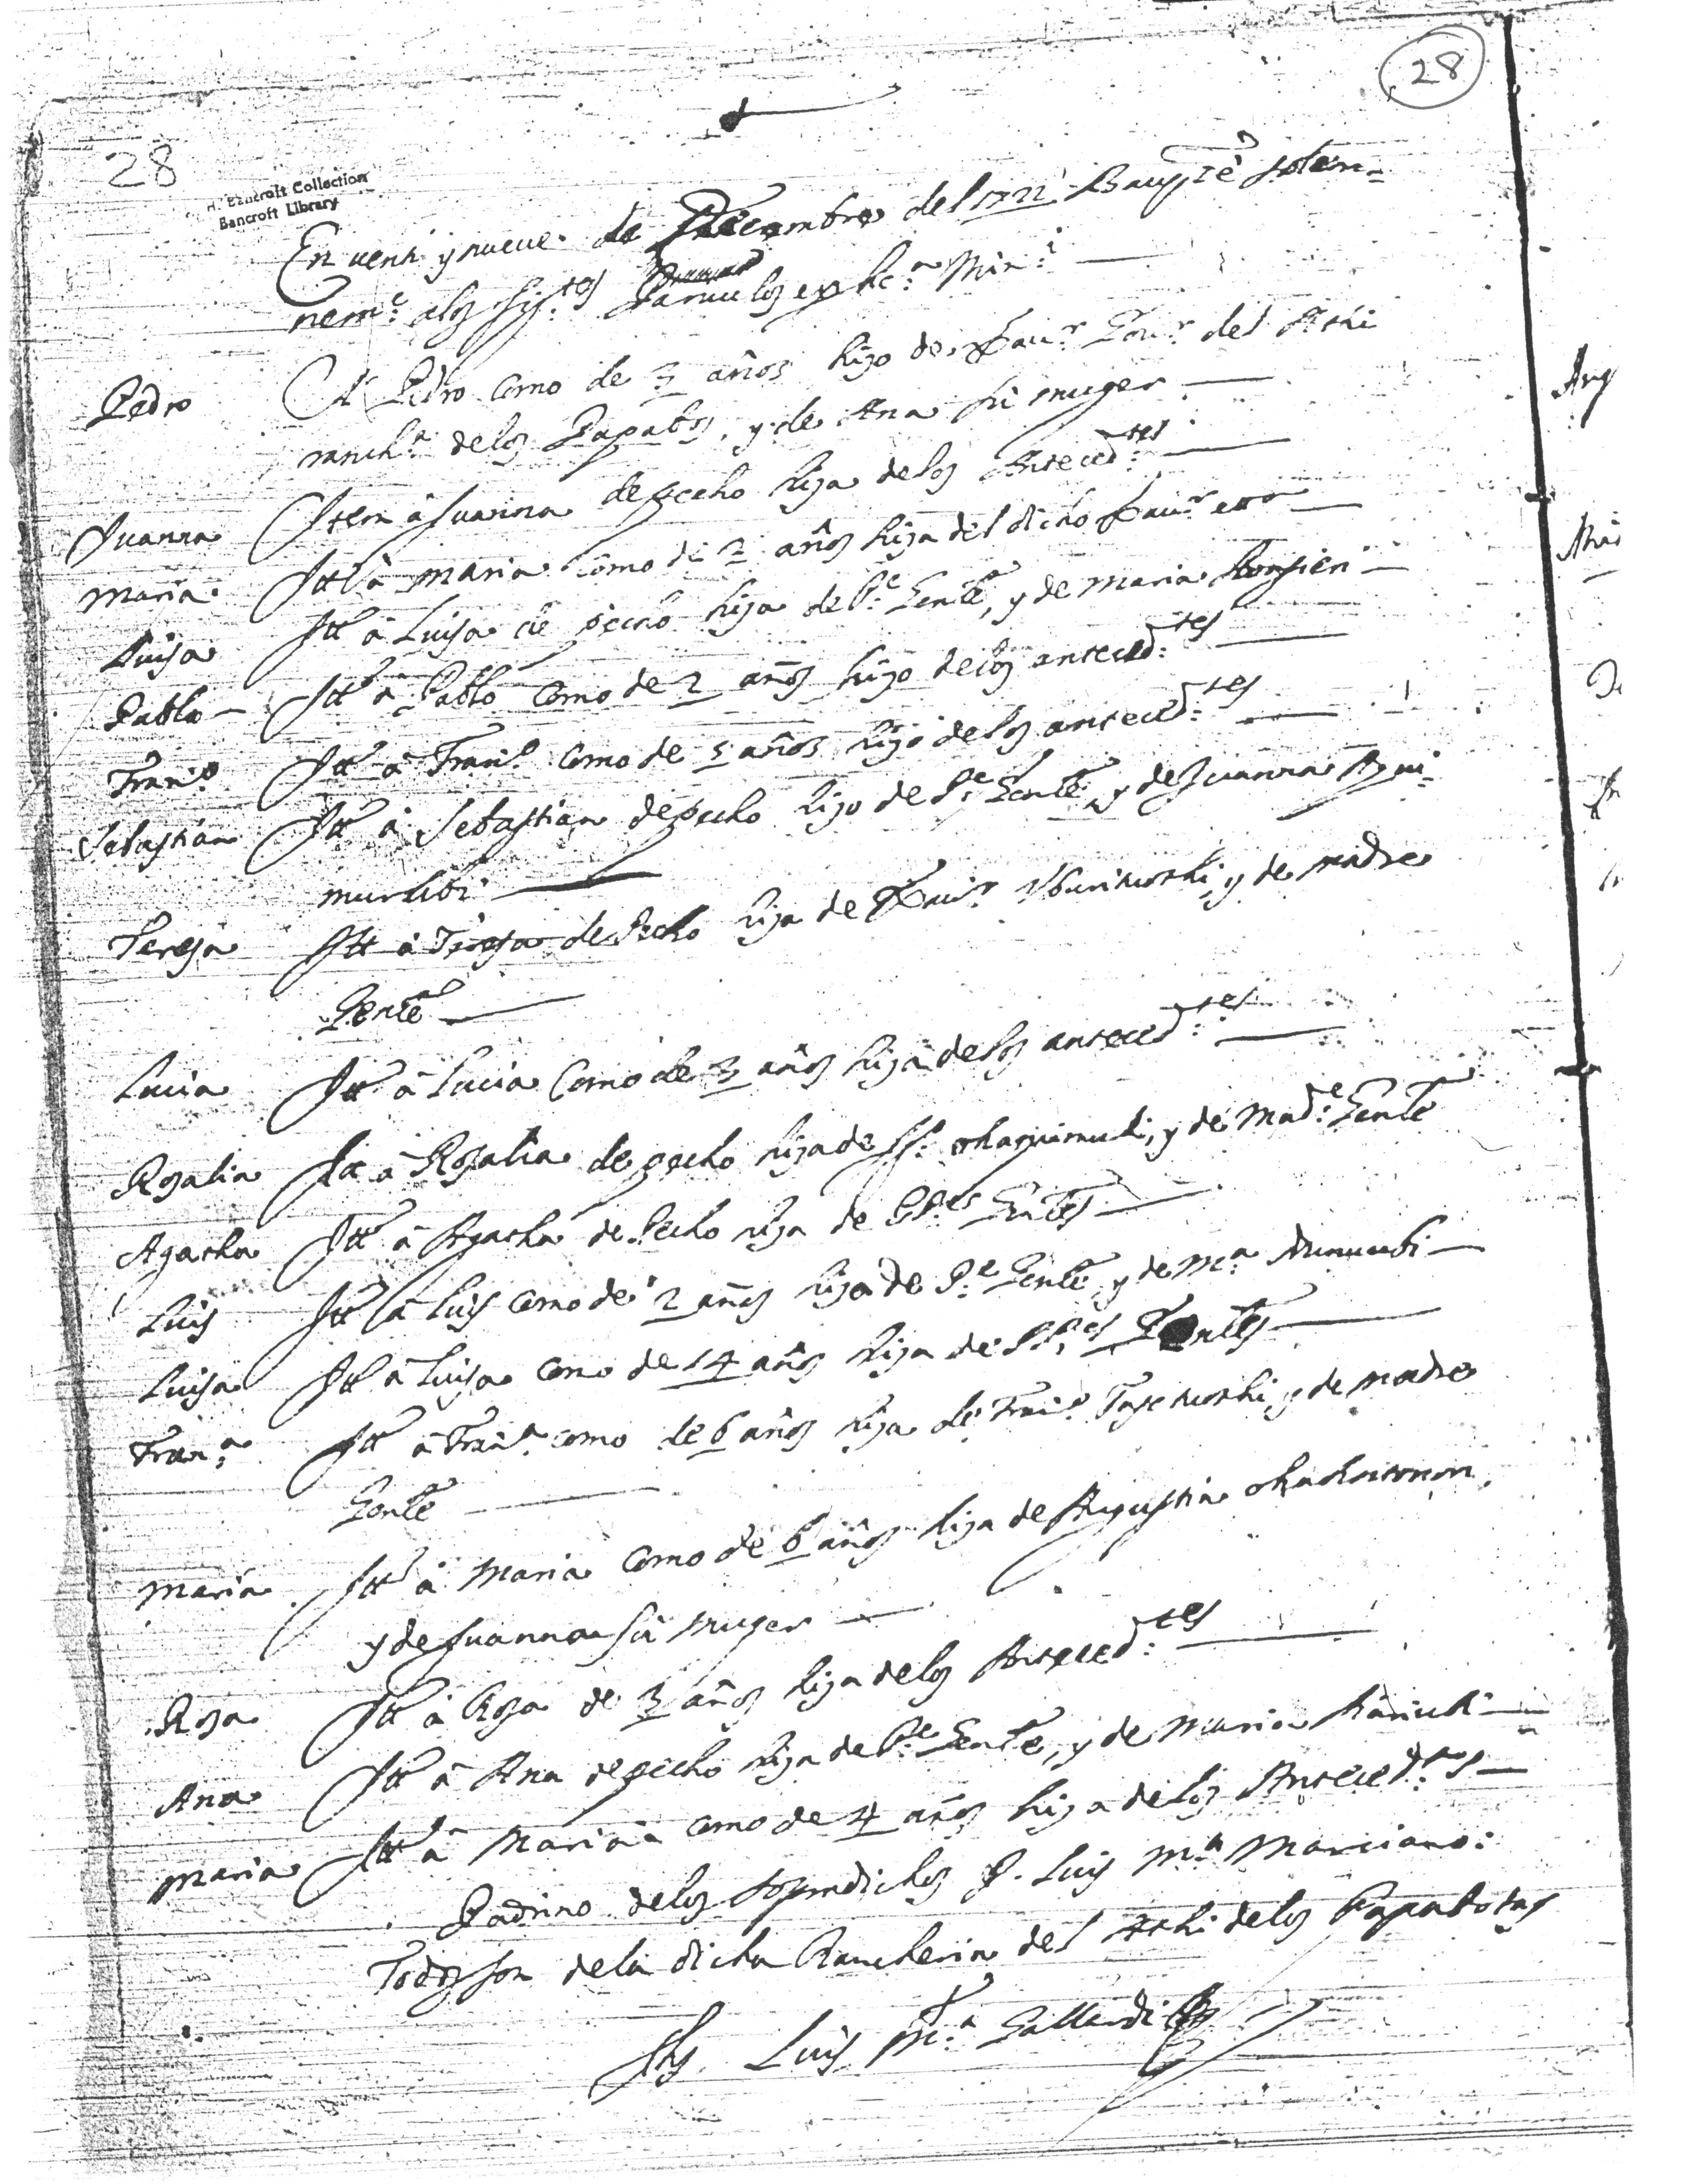 28
28
H. Bancroft Collection
Bancroft Library
En uenti y nueve de Decembre del 1722 Baupte solem=
nem.e a los sig.tes Paruulos en Mis.n
Pedro A Pedro como de 3 años hijo de Xau.r Gou.r del Athi
ranch.a de los Papabos, y de Ana su muger
Juanna Item â Juanna de pecho hija de los Anteced.tes
Maria Itt â Maria como de 2 años hija del dicho Xau.r
Luisa Itt â Luisa de pecho hija de P.e Gentl, y de Maria
Pablo Itt â Pablo como de 2 años hijo de los anteced.tes
Fran.co Itt â Fran.co como de 5 años hijo de los anteced.tes
Sebastian Itt â Sebastian de pecho hijo de P.e Gentl, y de Juanna
Teresa Itt â Teresa de Pecho hija de Xau.r y de madre
Gentl
Lucia Itt â Lucia como de 3 años hija de los anteced.tes
Rosalia Itt â Rosalia de pecho hija de y de Mad.e Gentl
Agatha Itt â Agatha de Pecho hija de PP.es Gentes
Luis Itt â Luis como de 2 años hijo de P.e Gentl, y de M.a
Luisa Itt â Luisa como de 14 años hija de PP.es Gentes
Fran.ca Itt â Fran.ca como de 6 años hija de Fran.co y de madre
Gentl
Maria Itt â Maria como de 6 años hija de Augustin
y de Juanna su muger
Rosa Itt â Rosa de 3 años hija de los Anteced.tes
Ana Itt â Ana de pecho hija de P.e Gentl, y de Maria
Maria Itt â Maria como de 4 años hija de los Anteced.tes
Padrino de los sopradichos P. Luis M.a Marciano:
Todos son de la dicha Rancheria del Athi de los Papabotas
Luis M.a Gallardi